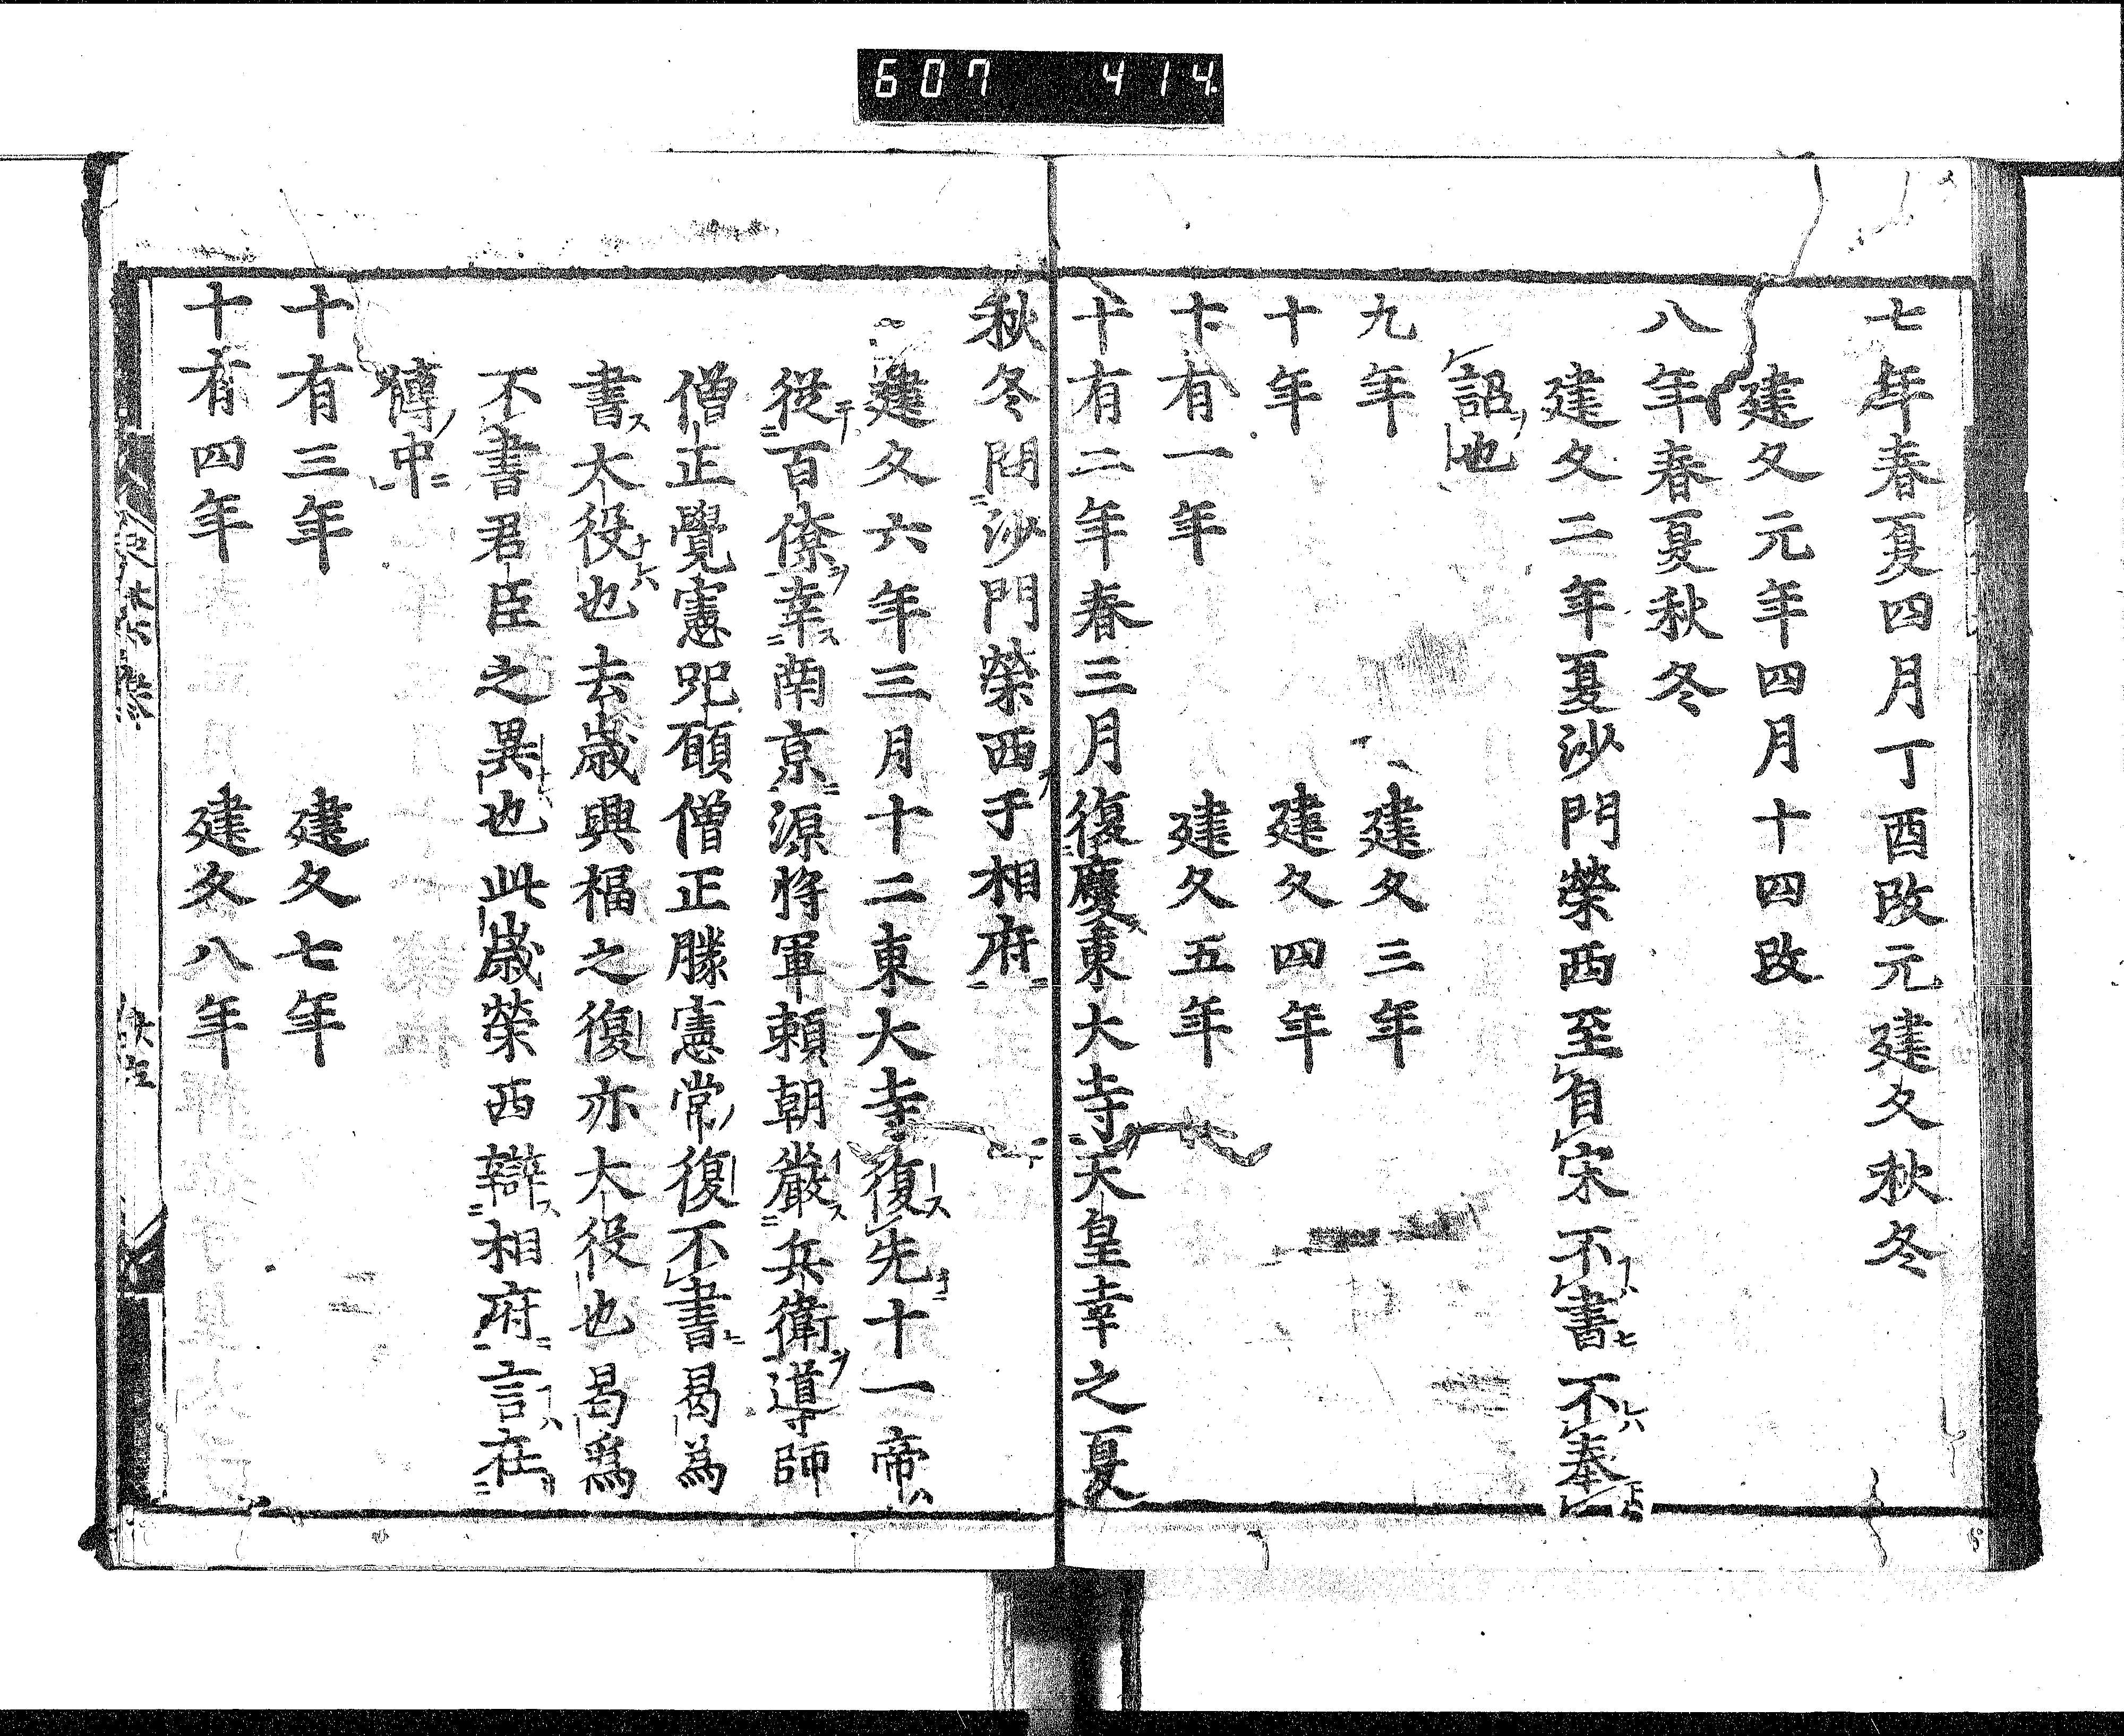 607 414
七年春夏四月丁酉改元建久秋冬
建久元年四月十四改
八年春夏秋冬
建久二年夏沙門榮西至自宋不書不奉
詔也
九年 建久三年
十年 建久四年
十有一年 建久五年
十有二年春三月復慶東大寺天皇幸之夏
秋冬問沙門榮西于相府
建久六年三月十二東大寺復先十一帝
從百僚幸南京源將軍賴朝嚴兵衛導師
僧正覺憲咒願僧正勝憲常復不書曷為
書大役也去歲興福之復亦大役也曷爲
不書君臣之異也此歲榮西辯相府言在
傳中
十有三年 建久七年
十有四年 建久八年